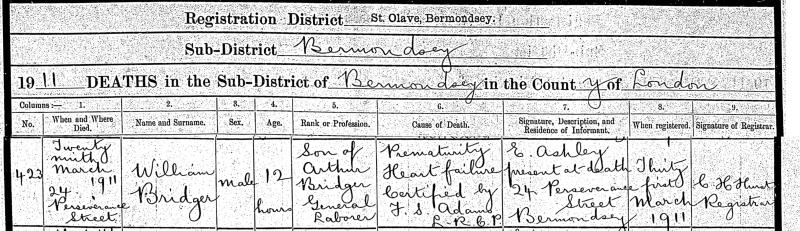 Registration District St. Olave, Bermondsey.
Sub-District Bermondsey
1911 DEATHS in the Sub-District of Bermondsey in the County of London
Columns:— 1. 2. 3. 4. 5. 6. 7. 8. 9.
No. When and Where Died. Name and Surname. Sex. Age. Rank or Profession. Cause of Death. Signature, Description, and Residence of Informant. When registered. Signature of Registrar.
423
Twenty
ninth
March
1911
24
Perseverance
Street
William
Bridger
male
12
hours
Son of
Arthur
Bridger
General
Laborer
Prematurity
Heart failure
Certified by
F. S. Adams
L.R.C.P
E. Ashley
present at death
24 Perseverance
Street
Bermondsey
Thirty
first
March
1911
C H Hunt
Registrar